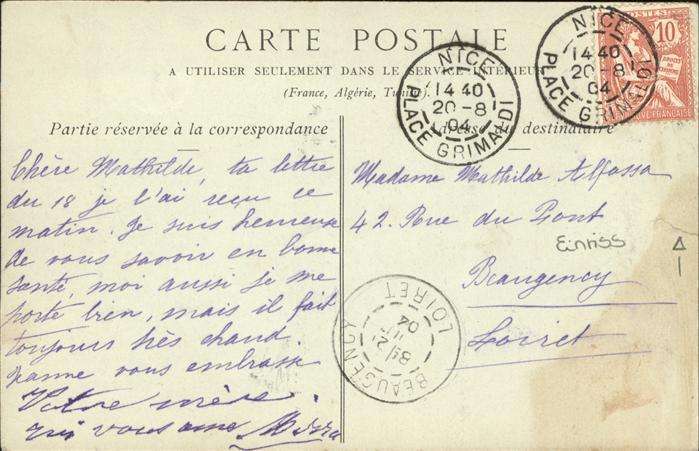 CARTE POSTALE
A UTILISER SEULEMENT DANS LE SERVICE INTÉRIEUR
(France, Algérie, Tunisie)
Partie réservée à la correspondance
Adresse du destinataire
NICE
14 40
20 - 8
04
PLACE GRIMALDI
NICE
14 40
20 - 8
04
PLACE GRIMALDI
POSTES
10
RÉPUBLIQUE FRANÇAISE
Chère Mathilde, ta lettre
du 18 je l'ai reçu ce
matin. Je suis heureuse
de vous savoir en bonne
santé, moi aussi je me
porte bien, mais il fait
toujours très chaud.
vous embrasse
Votre mère
qui vous aime
Madame Mathilde Alfassa
42. Rue du Pont
Einriss
Beaugency
Loiret
BEAUGENCY
21
04
LOIRET